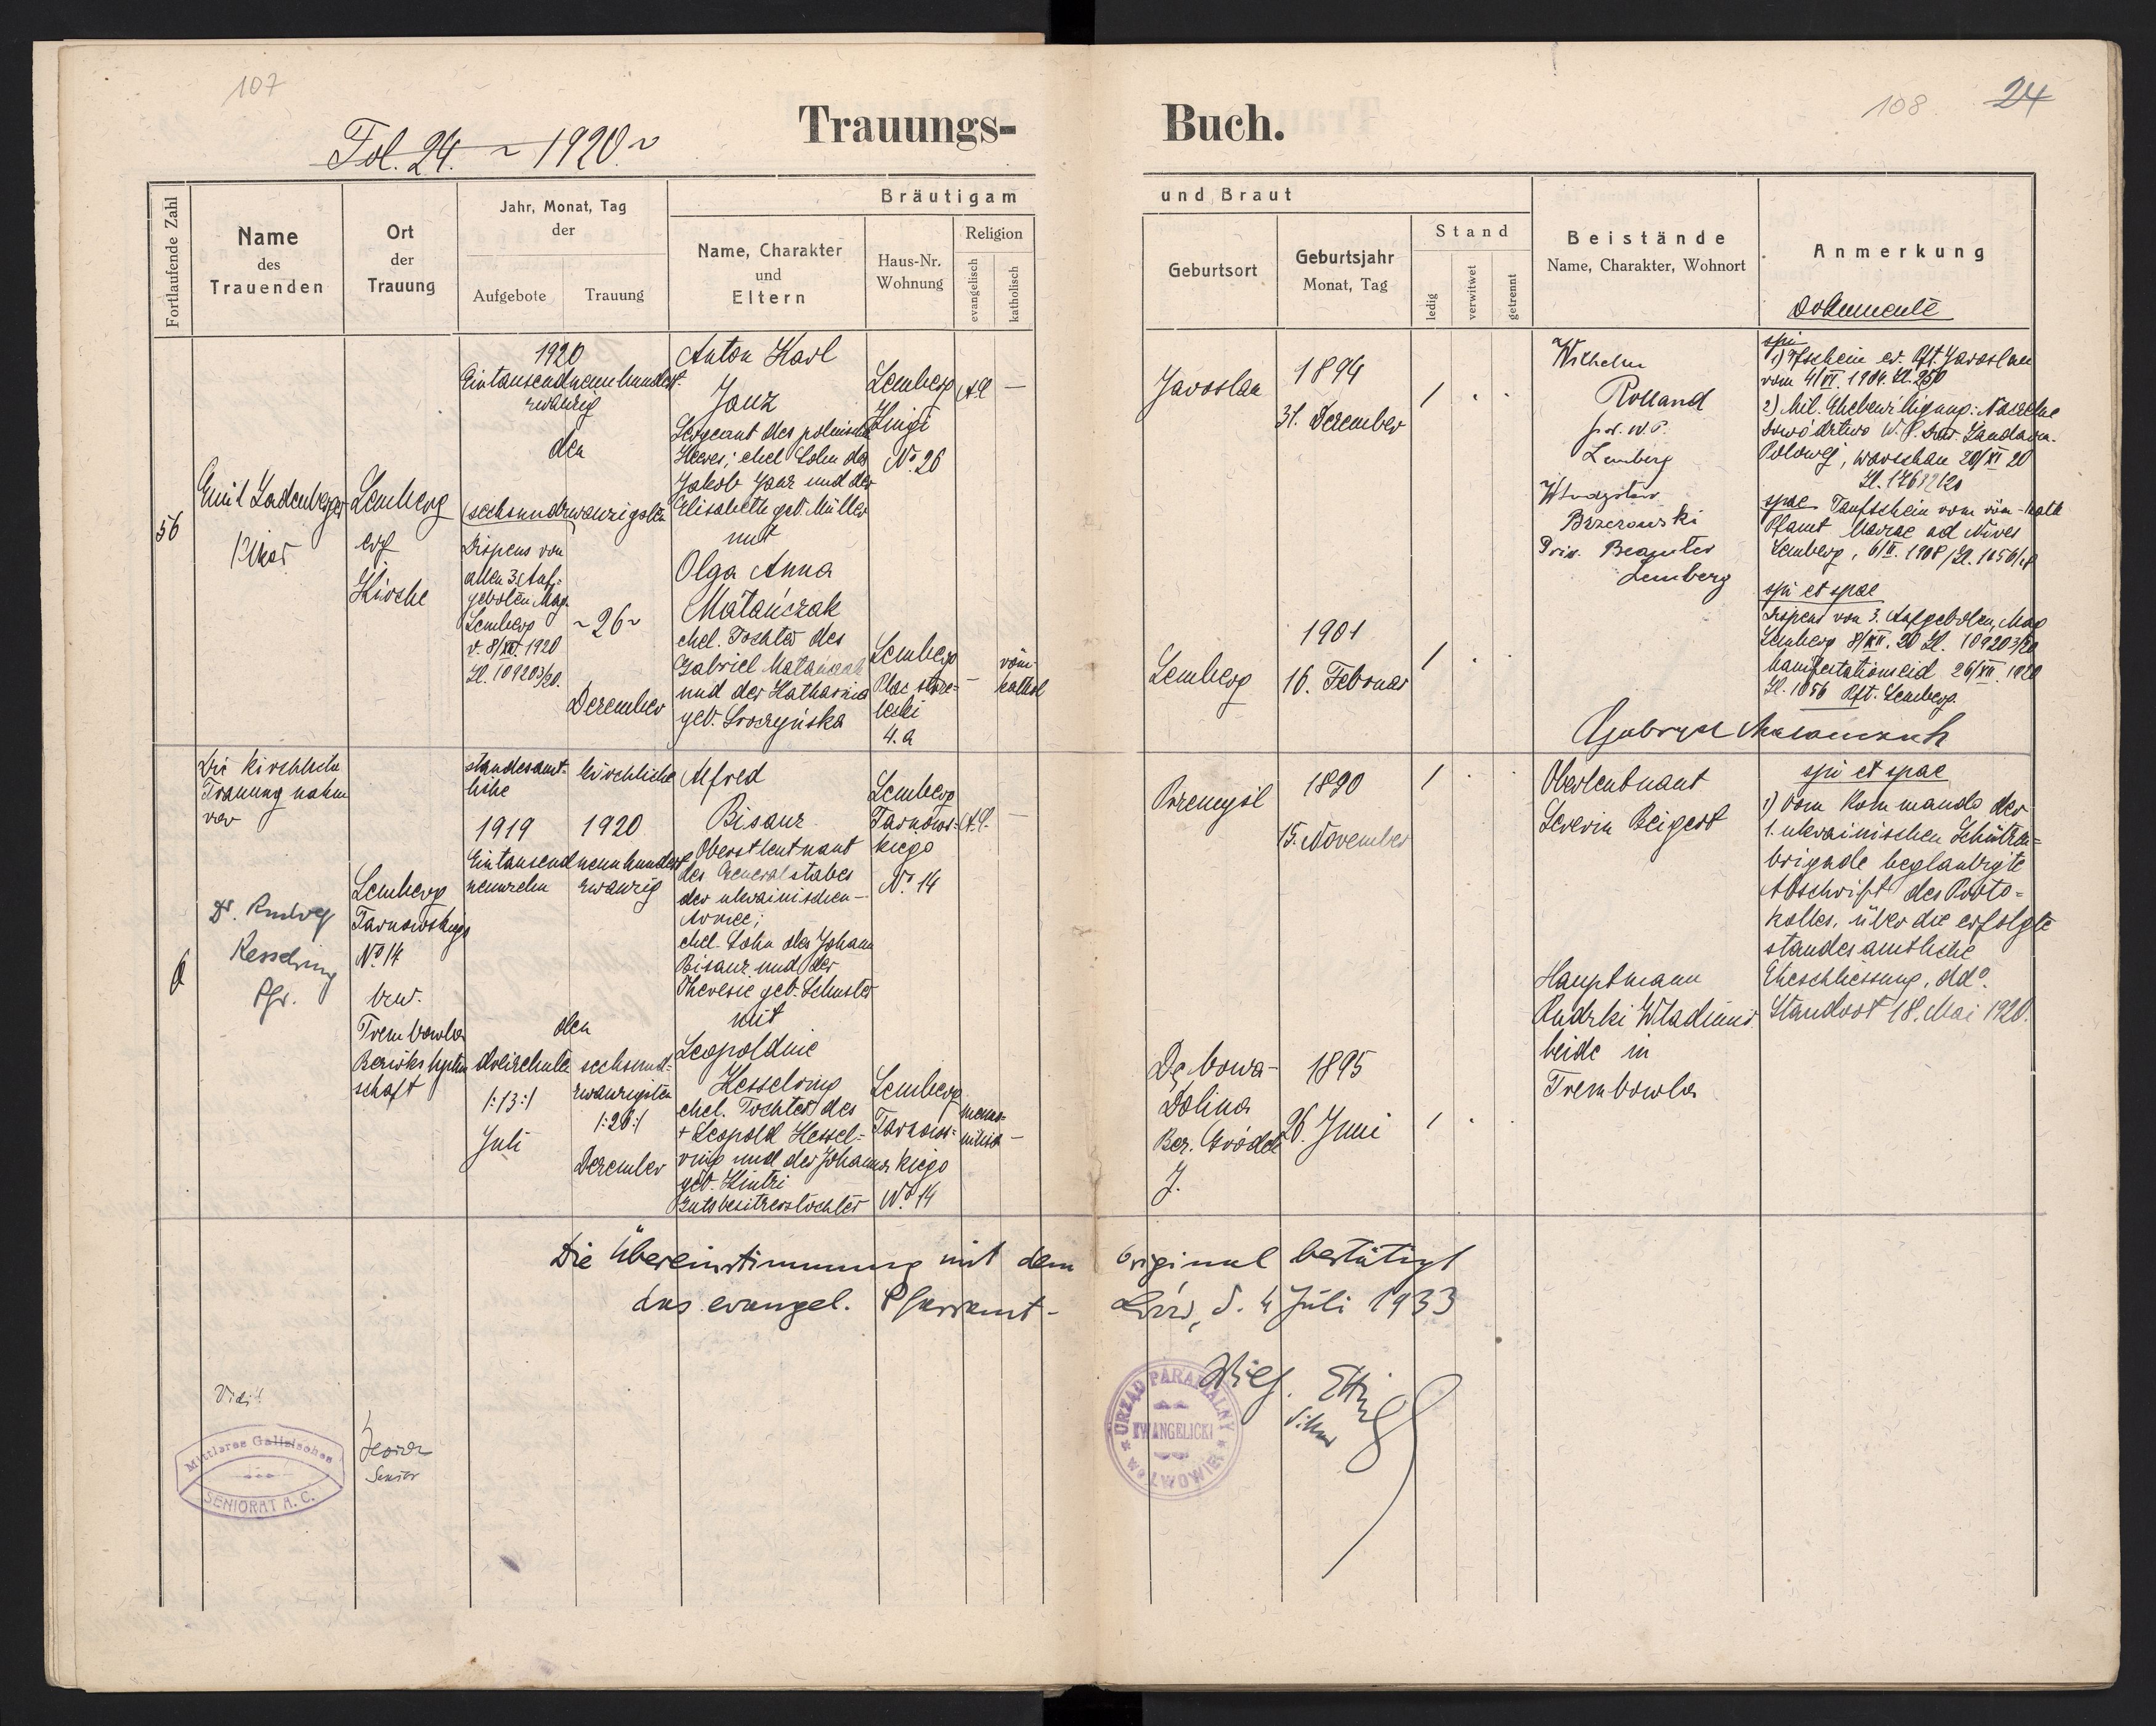 107
Fol. 24. ~ 1920 ~
Trauungs-
Buch.
108
24
Fortlaufende Zahl
Name
des
Trauenden
Ort
der
Trauung
Jahr, Monat, Tag
der
Aufgebote
Trauung
Bräutigam
Name, Charakter
und
Eltern
Haus-Nr.
Wohnung
Religion
evangelisch
katholisch
und Braut
Geburtsort
Geburtsjahr
Monat, Tag
Stand
ledig
verwitwet
getrennt
Beistände
Name, Charakter, Wohnort
Anmerkung
Dokumente
56
Emil Ladenberger
Vikar
Lemberg
evg
Kirche
1920
Eintausendneunhundert
zwanzig
den
sechsundzwanzigsten
Dispens von
allen 3 Auf-
geboten Mag.
Lemberg
v. 8/XII. 1920
Zl. 109203/20.
~ 26 ~
Dezember
Anton Karl
Janz
Sergeant des polnischen
Heeres; ehel. Sohn des
Jakob Janz und der
Elisabeth geb. Müller
mit
Olga Anna
Matańczak
ehel. Tochter des
Gabriel Matańczak
und der Katharina
geb. Sroczyńska
Lemberg
Kingi
No. 26
A.C. —
Lemberg
Plac strze-
lecki
4.a
—
röm-
kathol
Jaroslau
1894
31. Dezember
/ . .
Lemberg
1901
16. Februar
/ . .
Wilhelm
Rolland
W.P.
Lemberg
Brzezowski
Priv. Beamter
Lemberg
spii
1) Tfschein ev. Pft. Jaroslau
vom 4/VI. 1904. Zl. 250
2) Mil. Ehebewilligung: Naczelne
Dowództwo W.P. Żandarm.
Polowej, Warschau 20/XI 20
spae Taufschein vom röm-kath
Pfamt Mariae ad Nives
Lemberg, 6/II. 1908 / Zl. 1056/08
spii et spae
Dispens von 3. Aufgeboten, Mag
Lemberg 8/XII. 20 Zl. 109203/20
Manifestationseid 26/XII. 1920
Zl. 1056 Pft. Lemberg.
Gabryel Matańczak
6
Die kirchliche
Trauung nahm
vor
Dr. Rudolf
Kesselring
Pfr.
Lemberg
Tarnowskiego
No. 14
bzw.
Trembowla
Bezirkshptm
schaft
standesamt-
liche
1919
Eintausend
neunzehn
dreizehnte
/:13:/
Juli
kirchliche
1920
neunhundert
zwanzig
den
sechsund-
zwanzigsten
/:26:/
Dezember
Alfred
Bisanz
Oberstleutnant
des Generalstabes
der ukrainischen
Armee;
ehel. Sohn des Johann
Bisanz und der
Theresie geb. Schuster
mit
Leopoldine
Hesselring
ehel. Tochter des
+ Leopold Hessel-
ring und der Johanna
geb. Kintzi
Gutsbesitzerstochter
Lemberg
Tarnows-
kiego
No. 14
A.C. —
Lemberg
Tarnows-
kiego
No. 14
menno-
nitisch —
Przemysl
1890
15. November
/ . .
Dębowa-
Dolina
Bez. Gródek
J.
1895
26. Juni
/ .
Oberleutnant
Severin Beigert
Hauptmann
Rudzki Wladimir
beide in
Trembowla
spii et spae
1) Vom Kommando der
1. ukrainischen Schützen-
brigade beglaubigte
Abschrift des Proto-
kolles, über die erfolgte
standesamtliche
Eheschliessung, ddo.
Standort 18. Mai 1920.
Die Übereinstimmung mit dem Original bestätigt
das evangel. Pfarramt - Lwów, d. 4 Juli 1933
Vidit
Mittleres Galizisches
SENIORAT A. C.
Senior
URZĄD PARAFIALNY
EWANGELICKI
WE LWOWIE
Vikar